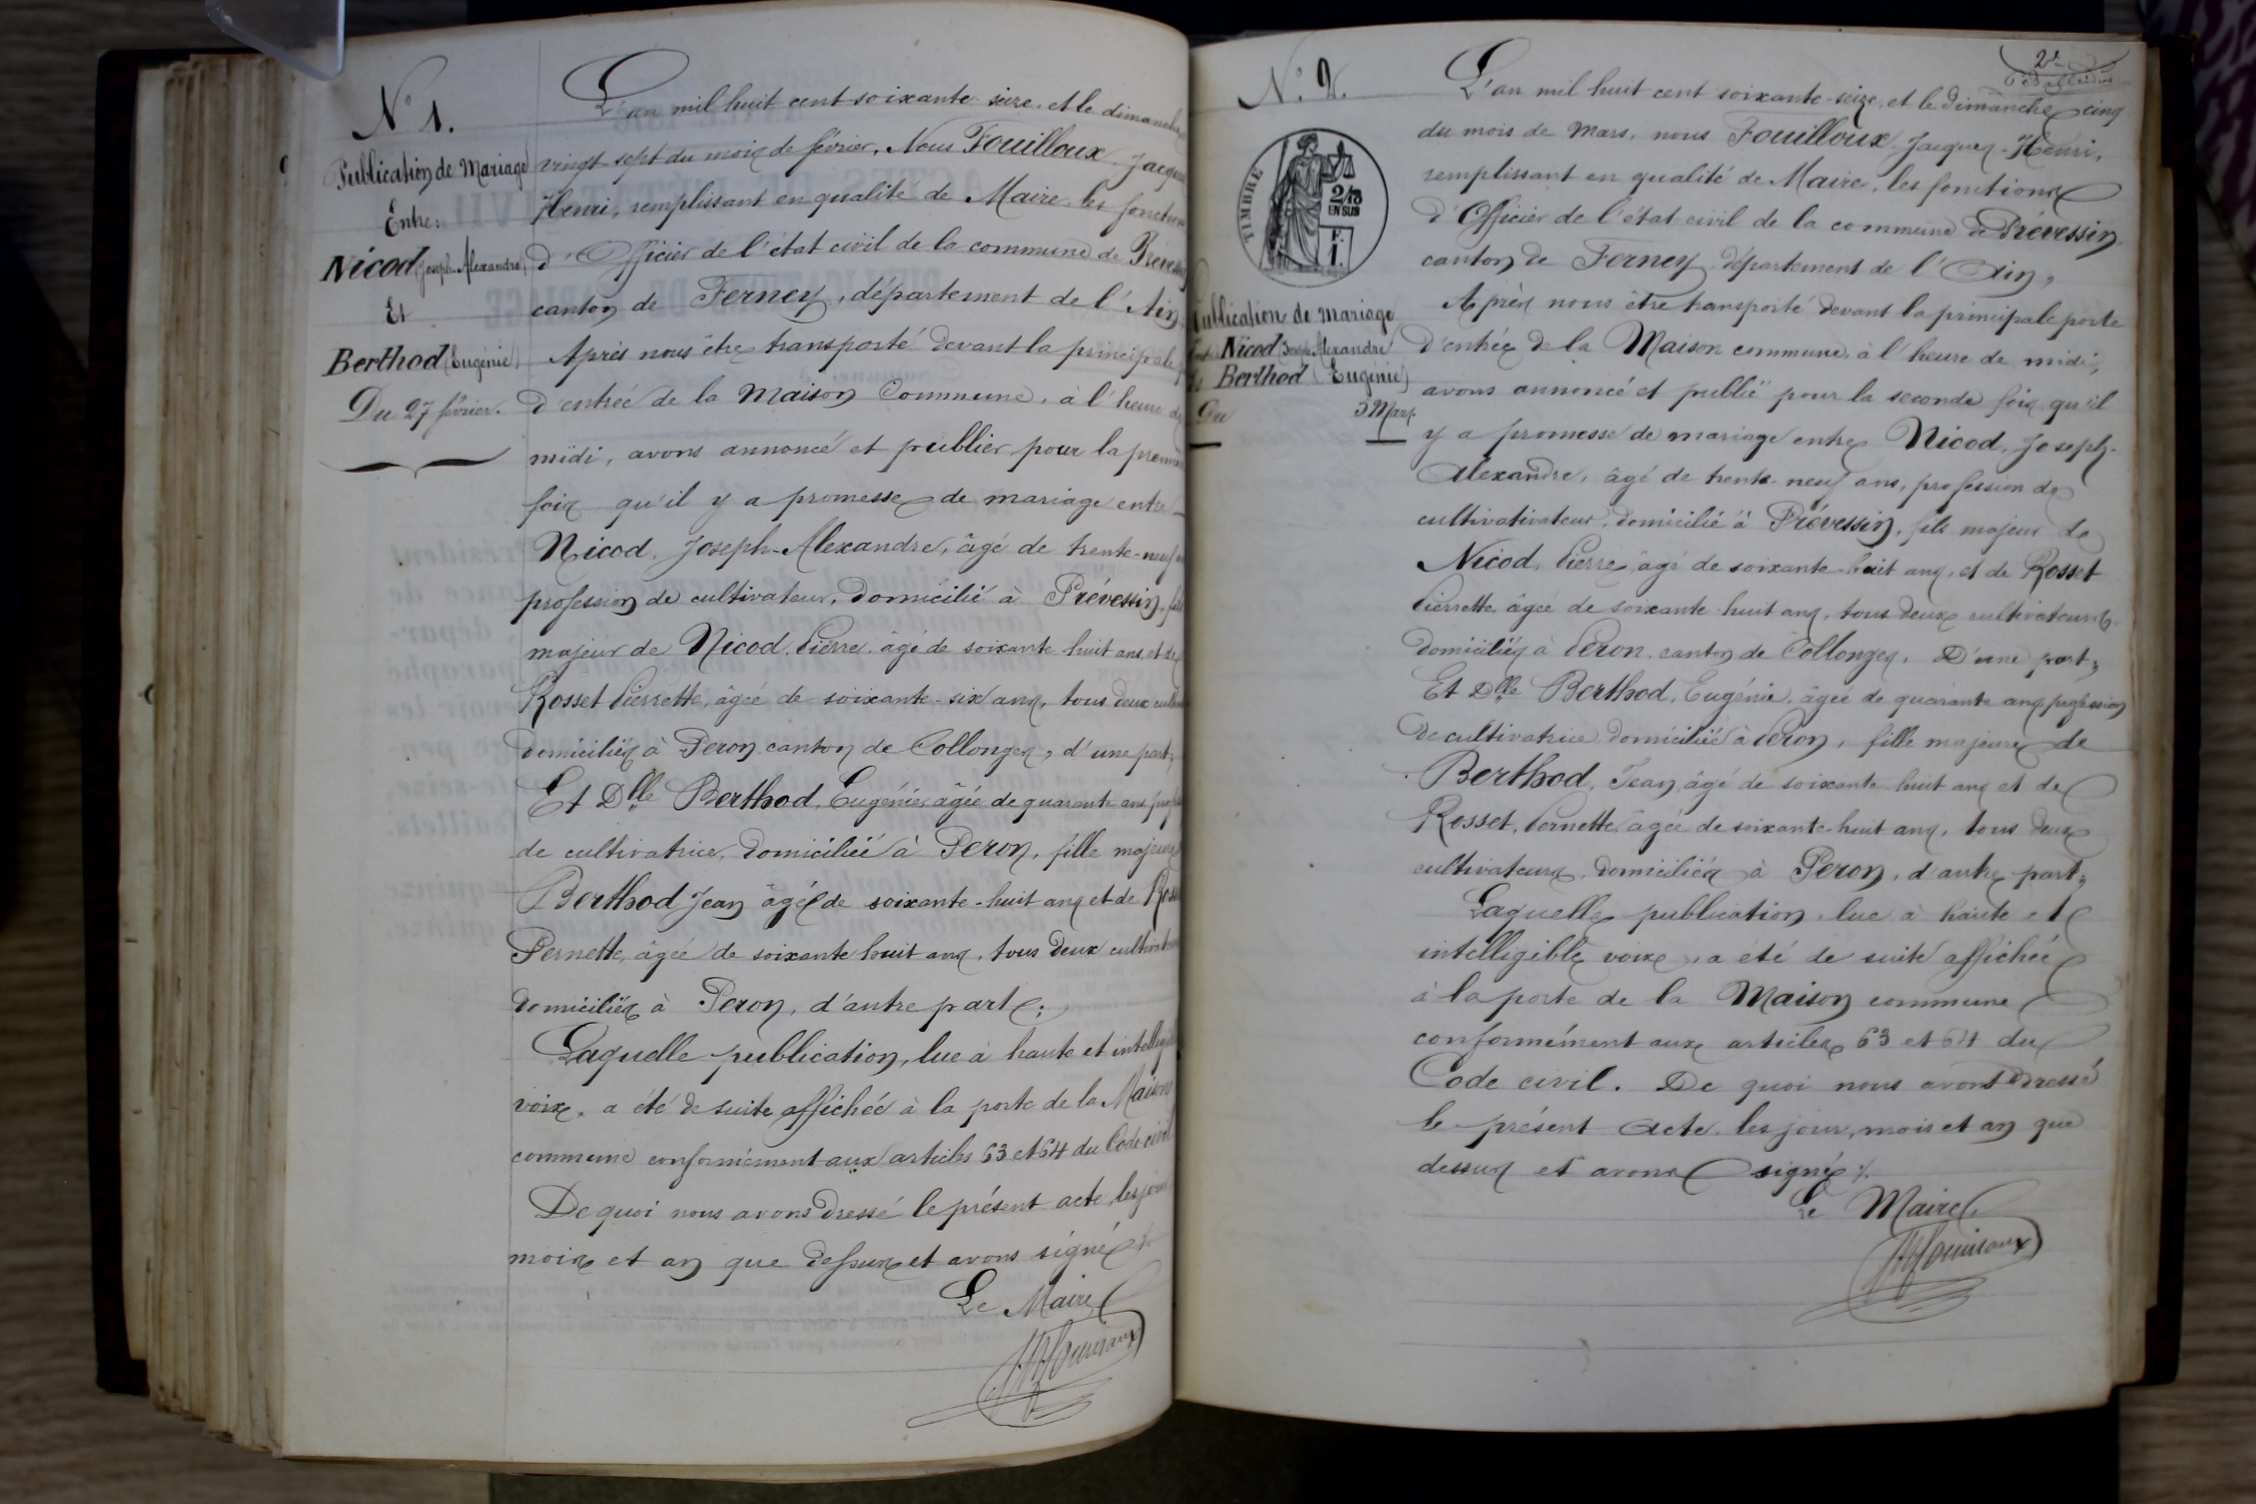 N° 1.
Publication de Mariage
Entre:
Nicod (Joseph-Alexandre)
Et
Berthod (Eugénie)
Du 27 février.
L'an mil huit cent soixante seize, et le dimanche
vingt-sept du mois de février, Nous Fouilloux, Jacques
Henri, remplissant en qualité de Maire les fonctions
d'Officier de l'état civil de la commune de Prévessin
canton de Ferney, département de l'Ain,
Après nous être transporté devant la principale
d'entrée de la Maison Commune, à l'heure de
midi, avons annoncé et publier pour la première
fois qu'il y a promesse de mariage entre
Nicod, Joseph-Alexandre, âgé de trente-neuf
profession de cultivateur, domicilié à Prévessin, fils
majeur de Nicod, Pierre, âgé de soixante huit ans, et de
Rosset Pierrette, âgée de soixante-six ans, tous deux
domiciliés à Peron canton de Collonges, d'une part;
Et Dlle Berthod, Eugénie, âgée de quarante ans
de cultivatrice, domiciliée à Peron, fille majeure
Berthod Jean âgé de soixante-huit ans et de
Pernette, âgée de soixante huit ans, tous deux
domiciliés à Peron, d'autre part;
Laquelle publication, lue à haute et
voix, a été de suite affichée à la porte de la Maison
commune conformément aux articles 63 et 64 du Code civil
De quoi nous avons dressé le présent acte, les jour
mois et an que dessus et avons signé
Le Maire
N° 2.
TIMBRE
2/10
EN SUS
F.
1.
Publication de Mariage
Nicod Joseph Alexandre
Et Berthod (Eugénie)
Du 5 Mars.
2e
L'an mil huit cent soixante-seize, et le dimanche cinq
du mois de Mars, nous Fouilloux, Jacques-Henri,
remplissant en qualité de Maire, les fonctions
d'Officier de l'état civil de la commune de Prévessin
canton de Ferney, département de l'Ain,
Après nous être transporté devant la principale porte
d'entrée de la Maison commune, à l'heure de midi,
avons annoncé et publié pour la seconde fois qu'il
y a promesse de mariage entre Nicod, Joseph-
Alexandre, âgé de trente-neuf ans, profession de
cultivativateur, domicilié à Prévessin, fils majeur de
Nicod, Pierre, âgé de soixante-huit ans, et de Rosset
Pierrette âgée de soixante huit ans, tous deux cultivateurs
domiciliés à Peron, canton de Collonges, D'une part;
Et Dlle Berthod, Eugénie, âgée de quarante ans profession
de cultivatrice, domiciliée à Peron, fille majeure de
Berthod, Jean, âgé de soixante huit ans et de
Rosset, Pernette, âgée de soixante-huit ans, tous deux
cultivateurs, domiciliés à Peron, d'autre part;
Laquelle publication, lue à haute et
intelligible voix, a été de suite affichée
à la porte de la Maison commune
conformément aux articles 63 et 64 du
Code civil. De quoi nous avons dressé
le présent acte les jour, mois et an que
dessus et avons signé ./.
Le Maire